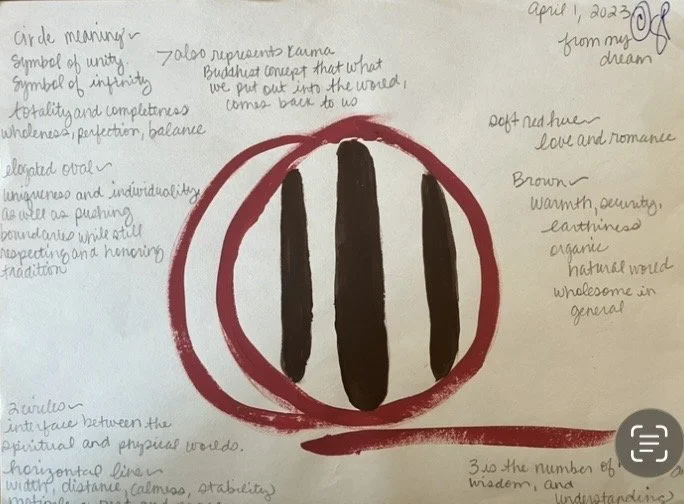 April 1, 2023
from my
dream
Circle meaning~
Symbol of unity.
Symbol of infinity
totality and completeness
wholeness, perfection, balance
>also represents Karma
Buddhist concept that what
we put out into the world,
comes back to us
elogated oval~
uniqueness and individuality
as well as pushing
boundaries while still
respecting and honoring
tradition
soft red hue~
love and romance
Brown~
Warmth, security,
earthiness
organic
natural world
wholesome in
general
2 circles~
interface between the
spiritual and physical worlds.
horizontal line~
width, distance, calmness, stability
3 is the number of
wisdom, and
understanding